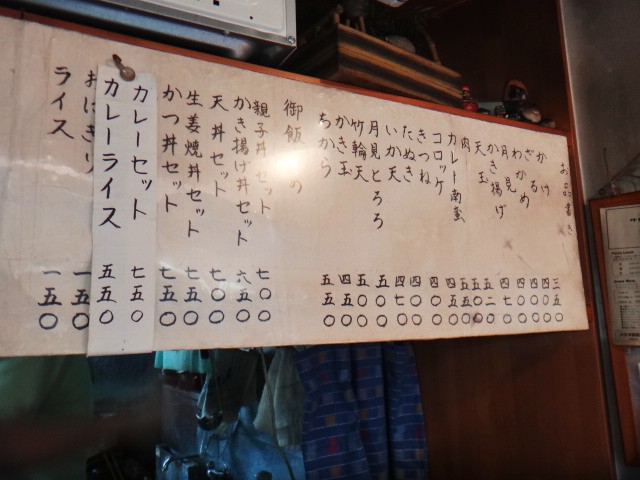 お品書き
かけ 三五〇
ざる 四〇〇
わかめ 四〇〇
月見 四〇〇
かき揚げ 四七〇
天玉 五二〇
肉 五五〇
カレー南蛮 五五〇
コロッケ 四五〇
きつね 四〇〇
たぬき 四〇〇
いか天 四七〇
月見とろろ 五〇〇
竹輪天 五〇〇
かき玉 四五〇
ちから 五五〇
御飯もの
親子丼セット 七〇〇
かき揚げ丼セット 六五〇
天丼セット 七〇〇
生姜焼丼セット 七五〇
かつ丼セット 七五〇
カレーセット 七五〇
カレーライス 五五〇
おにぎり 一五〇
ライス 一五〇